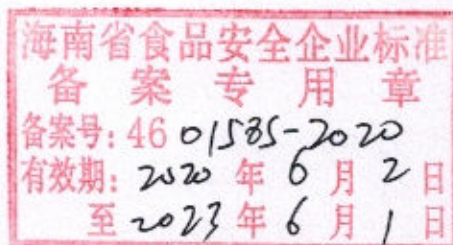 海南省食品安全企业标准
备案专用章
备案号: 46 01585-2020
有效期: 2020 年 6 月 2 日
至 2023 年 6 月 1 日